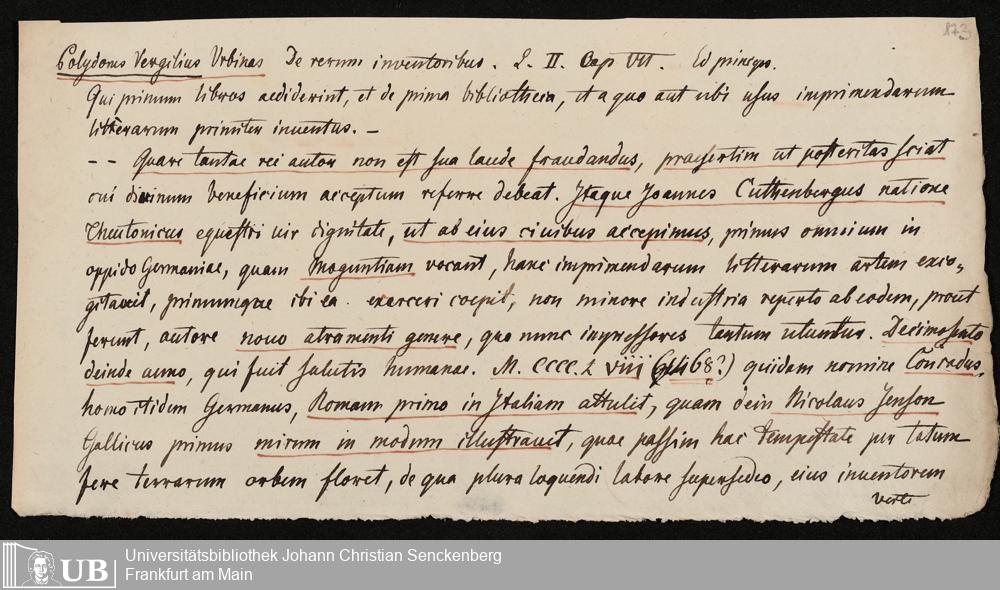 873
Polydorus Vergilius Urbinas De rerum inventoribus. L. II. Cap VII. Ed princeps.
Qui primum libros aediderint, et de prima bibliotheca, et a quo aut ubi usus imprimendarum
litterarum primiter inventus. —
-- Quare tantae rei autor non est sua laude fraudandus, praesertim ut posteritas sciat
cui divinum beneficium acceptum referre debeat. Itaque Joannes Cuthenbergus natione
Theutonicus equestri vir dignitate, ut ab eius civibus accepimus, primus omnium in
oppido Germaniae, quam Moguntiam vocant, hanc imprimendarum litterarum artem exco-
gitavit, primumque ibi ea exerceri coepit, non minore industria reperto ab eodem, prout
ferunt, autore novo atramenti genere, quo nunc inpressores tantum utuntur. Decimosexto
deinde anno, qui fuit salutis humanae. M. CCCC. L VIII (1468?) quidam nomine Conradus,
homo itidem Germanus, Romam primo in Italiam attulit, quam dein Nicolaus Jenson
Gallicus primus mirum in modum illustravit, quae passim hac tempestate per totum
fere terrarum orbem floret, de qua plura loquendi labore supersedeo, eius inventorem
verte
UB
Universitätsbibliothek Johann Christian Senckenberg
Frankfurt am Main